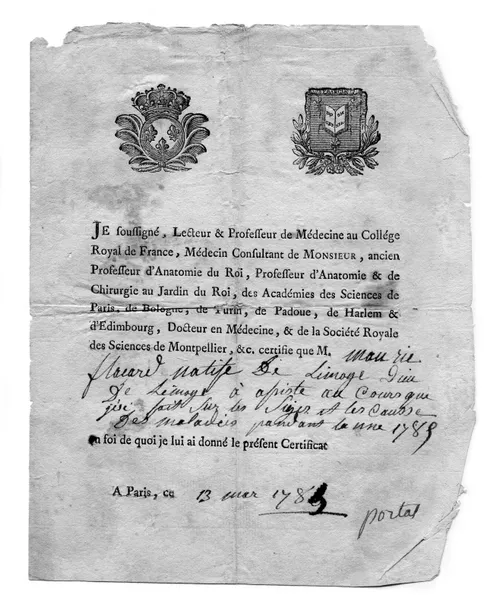 JE soussigné, Lecteur & Professeur de Médecine au Collége
Royal de France, Médecin Consultant de MONSIEUR, ancien
Professeur d'Anatomie du Roi, Professeur d'Anatomie & de
Chirurgie au Jardin du Roi, des Académies des Sciences de
Paris, de Bologne, de Turin, de Padoue, de Harlem &
d'Edimbourg, Docteur en Médecine, & de la Société Royale
des Sciences de Montpellier, &c. certifie que M. maurie
natife De Limoge
De Limoge à asisté au Cours que
j'ai fait sur les Sièges et les Causse
Des maladies pandans 1789
en foi de quoi je lui ai donné le présent Certificat
A Paris, ce 13 mar 1789
portal